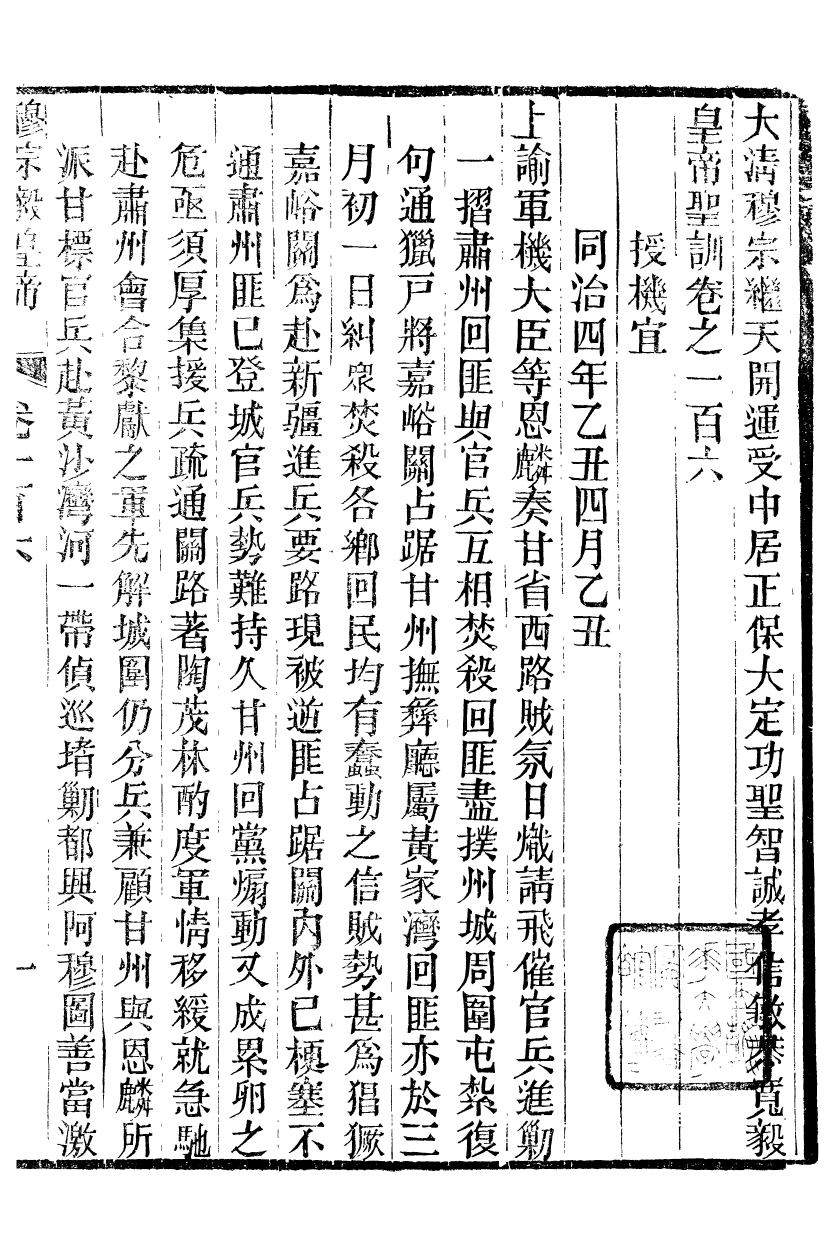 大清穆宗繼天開運受中居正保大定功聖智誠孝信敏恭寬毅
皇帝聖訓卷之一百六
授機宜
同治四年乙丑四月乙丑
上諭軍機大臣等恩麟奏甘省西路賊氛日熾請飛催官兵進勦
一摺肅州回匪與官兵互相焚殺回匪盡撲州城周圍屯紮復
句通獵戶將嘉峪關占踞甘州撫彝廳屬黃家灣回匪亦於三
月初一日糾眾焚殺各鄉回民均有蠢動之信賊勢甚為猖獗
嘉峪關為赴新疆進兵要路現被逆匪占踞關內外已梗塞不
通肅州匪已登城官兵勢難持久甘州回黨煽動又成累卵之
危亟須厚集援兵疏通關路著陶茂林酌度軍情移緩就急馳
赴肅州會合黎獻之軍先解城圍仍分兵兼顧甘州與恩麟所
派甘標官兵赴黃沙灣河一帶偵巡堵勦都興阿穆圖善當激
穆宗毅皇帝 卷一百六 一